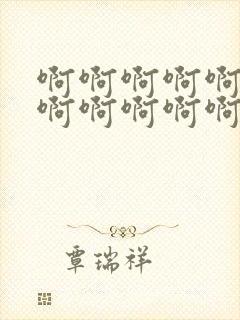 啊啊啊啊啊
啊啊啊啊啊
覃瑞祥